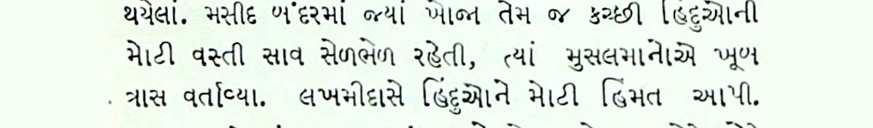 થયેલાં. મસીદ બંદરમાં જ્યાં ખોજા તેમ જ કચ્છી હિંદુઓની
મોટી વસ્તી સાવ સેળભેળ રહેતી, ત્યાં મુસલમાનોએ ખૂબ
ત્રાસ વર્તાવ્યા. લખમીદાસે હિંદુઓને મોટી હિંમત આપી.